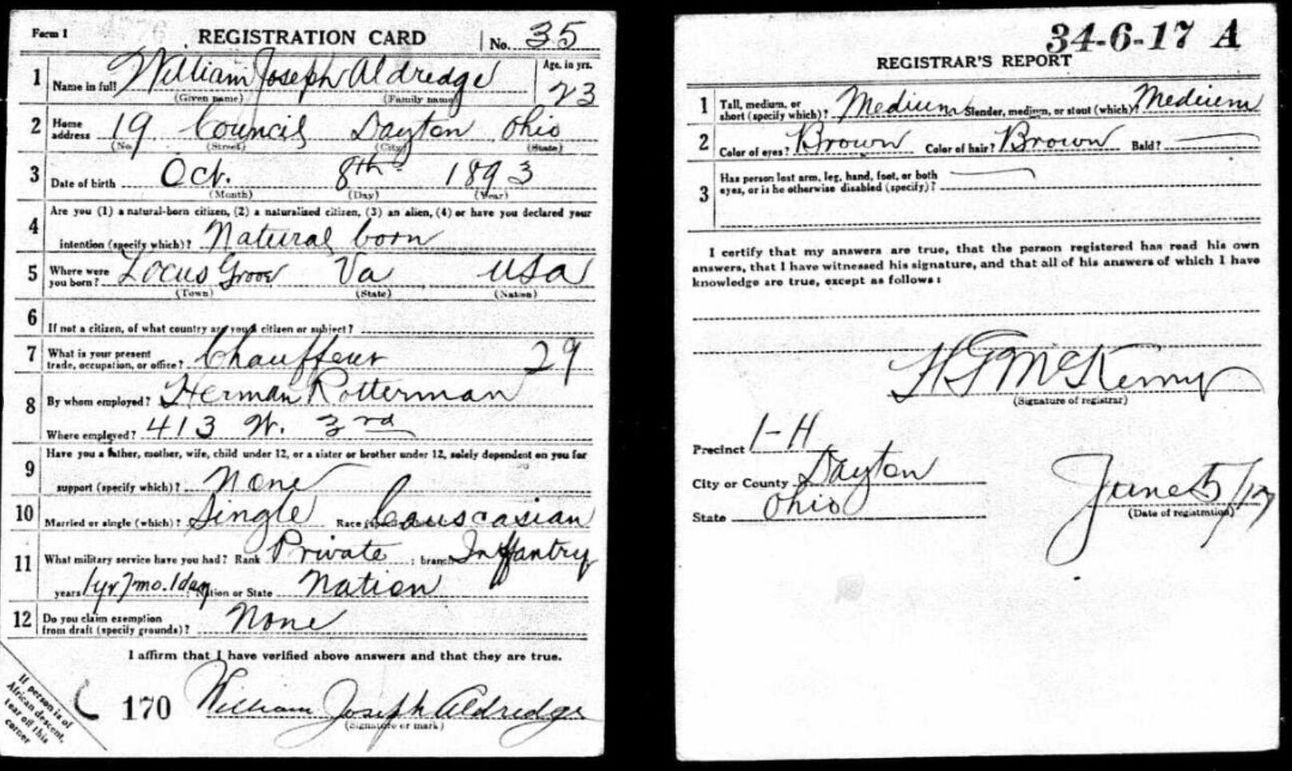 Form 1 REGISTRATION CARD No. 35
1 Name in full William Joseph Aldredge Age, in yrs. 23
(Given name) (Family name)
2 Home address 19 Council Dayton Ohio
(No.) (Street) (City) (State)
3 Date of birth Oct. 8th 1893
(Month) (Day) (Year)
4 Are you (1) a natural-born citizen, (2) a naturalized citizen, (3) an alien, (4) or have you declared your
intention (specify which)? Natural born
5 Where were you born? Locus Grove Va USA
(Town) (State) (Nation)
6 If not a citizen, of what country are you a citizen or subject?
7 What is your present trade, occupation, or office? Chauffeur 29
8 By whom employed? Herman Rotterman
Where employed? 413 W. 3rd
9 Have you a father, mother, wife, child under 12, or a sister or brother under 12, solely dependent on you for
support (specify which)? None
10 Married or single (which)? Single Race Causcasian
11 What military service have you had? Rank Private ; branch Inffantry
years 1yr 7mo. 1day Nation or State Nation
12 Do you claim exemption from draft (specify grounds)? None
I affirm that I have verified above answers and that they are true.
170 William Joseph Aldredge
(Signature or mark)
If person is of
African descent,
tear off this
corner
34-6-17 A
REGISTRAR'S REPORT
1 Tall, medium, or short (specify which)? Medium Slender, medium, or stout (which)? Medium
2 Color of eyes? Brown Color of hair? Brown Bald?
3 Has person lost arm, leg, hand, foot, or both
eyes, or is he otherwise disabled (specify)?
I certify that my answers are true, that the person registered has read his own
answers, that I have witnessed his signature, and that all of his answers of which I have
knowledge are true, except as follows:
H G McKenny
(Signature of registrar)
Precinct 1-H
City or County Dayton
State Ohio
June 5/17
(Date of registration)